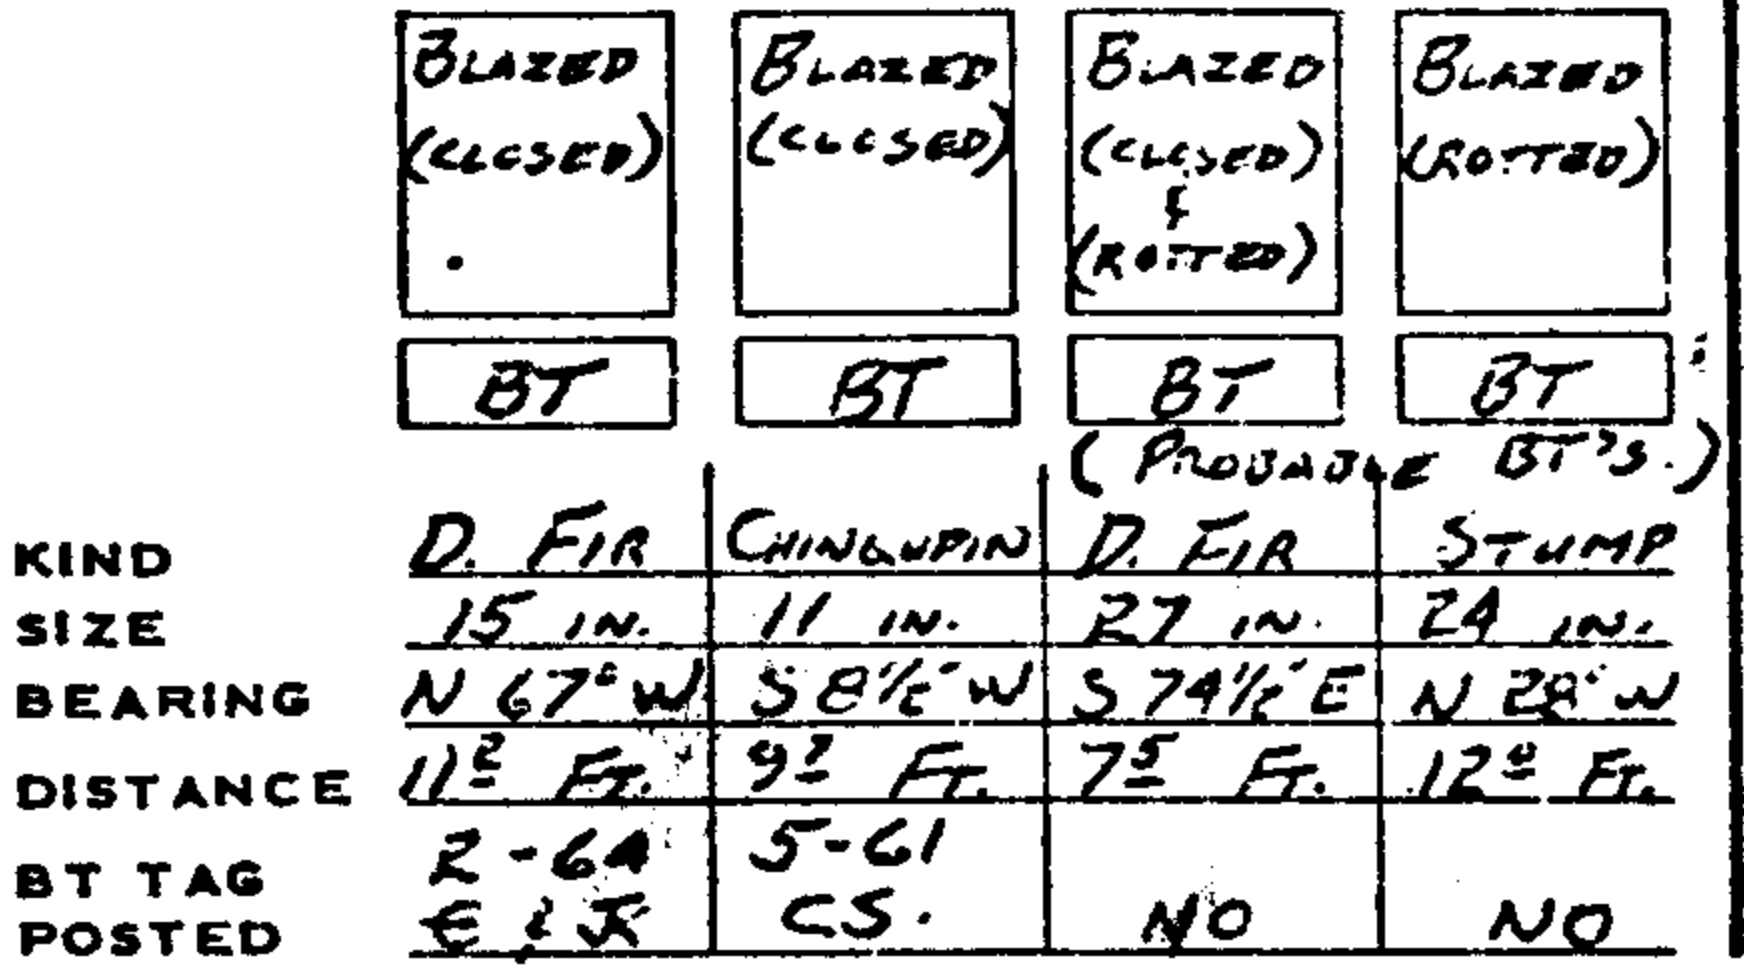 BLAZED BLAZED BLAZED BLAZED
(CLOSED) (CLOSED) (CLOSED) (ROTTED)
&
(ROTTED)
BT BT BT BT
(PROBABLE BT'S.)
KIND D. FIR CHINQUPIN D. FIR STUMP
SIZE 15 IN. 11 IN. 27 IN. 24 IN.
BEARING N 67° W S 8½° W S 74½° E N 28° W
DISTANCE 11² FT. 9⁷ FT. 7⁵ FT. 12⁰ FT.
BT TAG 2-64 5-61
POSTED CS. NO NO